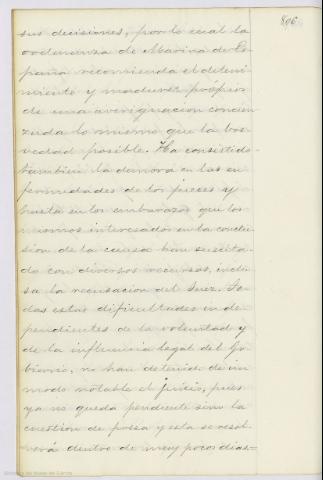 806
sus decisiones, por lo cual la
ordenanza de Marina de Es-
paña recomienda el deteni-
miento y madurez propios
de una averiguacion concien-
zuda lo mismo que la bre-
vedad posible. Ha consistido
tambien la demora en las en
fermedades de los jueces y
hasta en los embarazos que los
mismos interesados en la conclu-
sion de la causa han suscita-
do con diversos recursos, inclu-
sa la recusacion del Juez. To-
das estas dificultades inde-
pendientes de la voluntad y
de la influencia legal del Go-
bierno, no han detenido de un
modo notable el juicio, pues
ya no queda pendiente sino la
cuestion de presa y esta se resol-
verá dentro de muy pocos dias.=